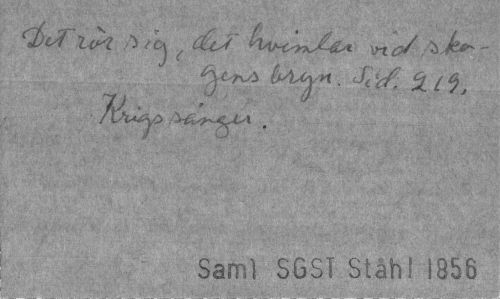 Det rör sig, det hvimlar vid sko-
gens bryn. Sid. 219.
Krigssånger.
Saml SGST Ståhl 1856